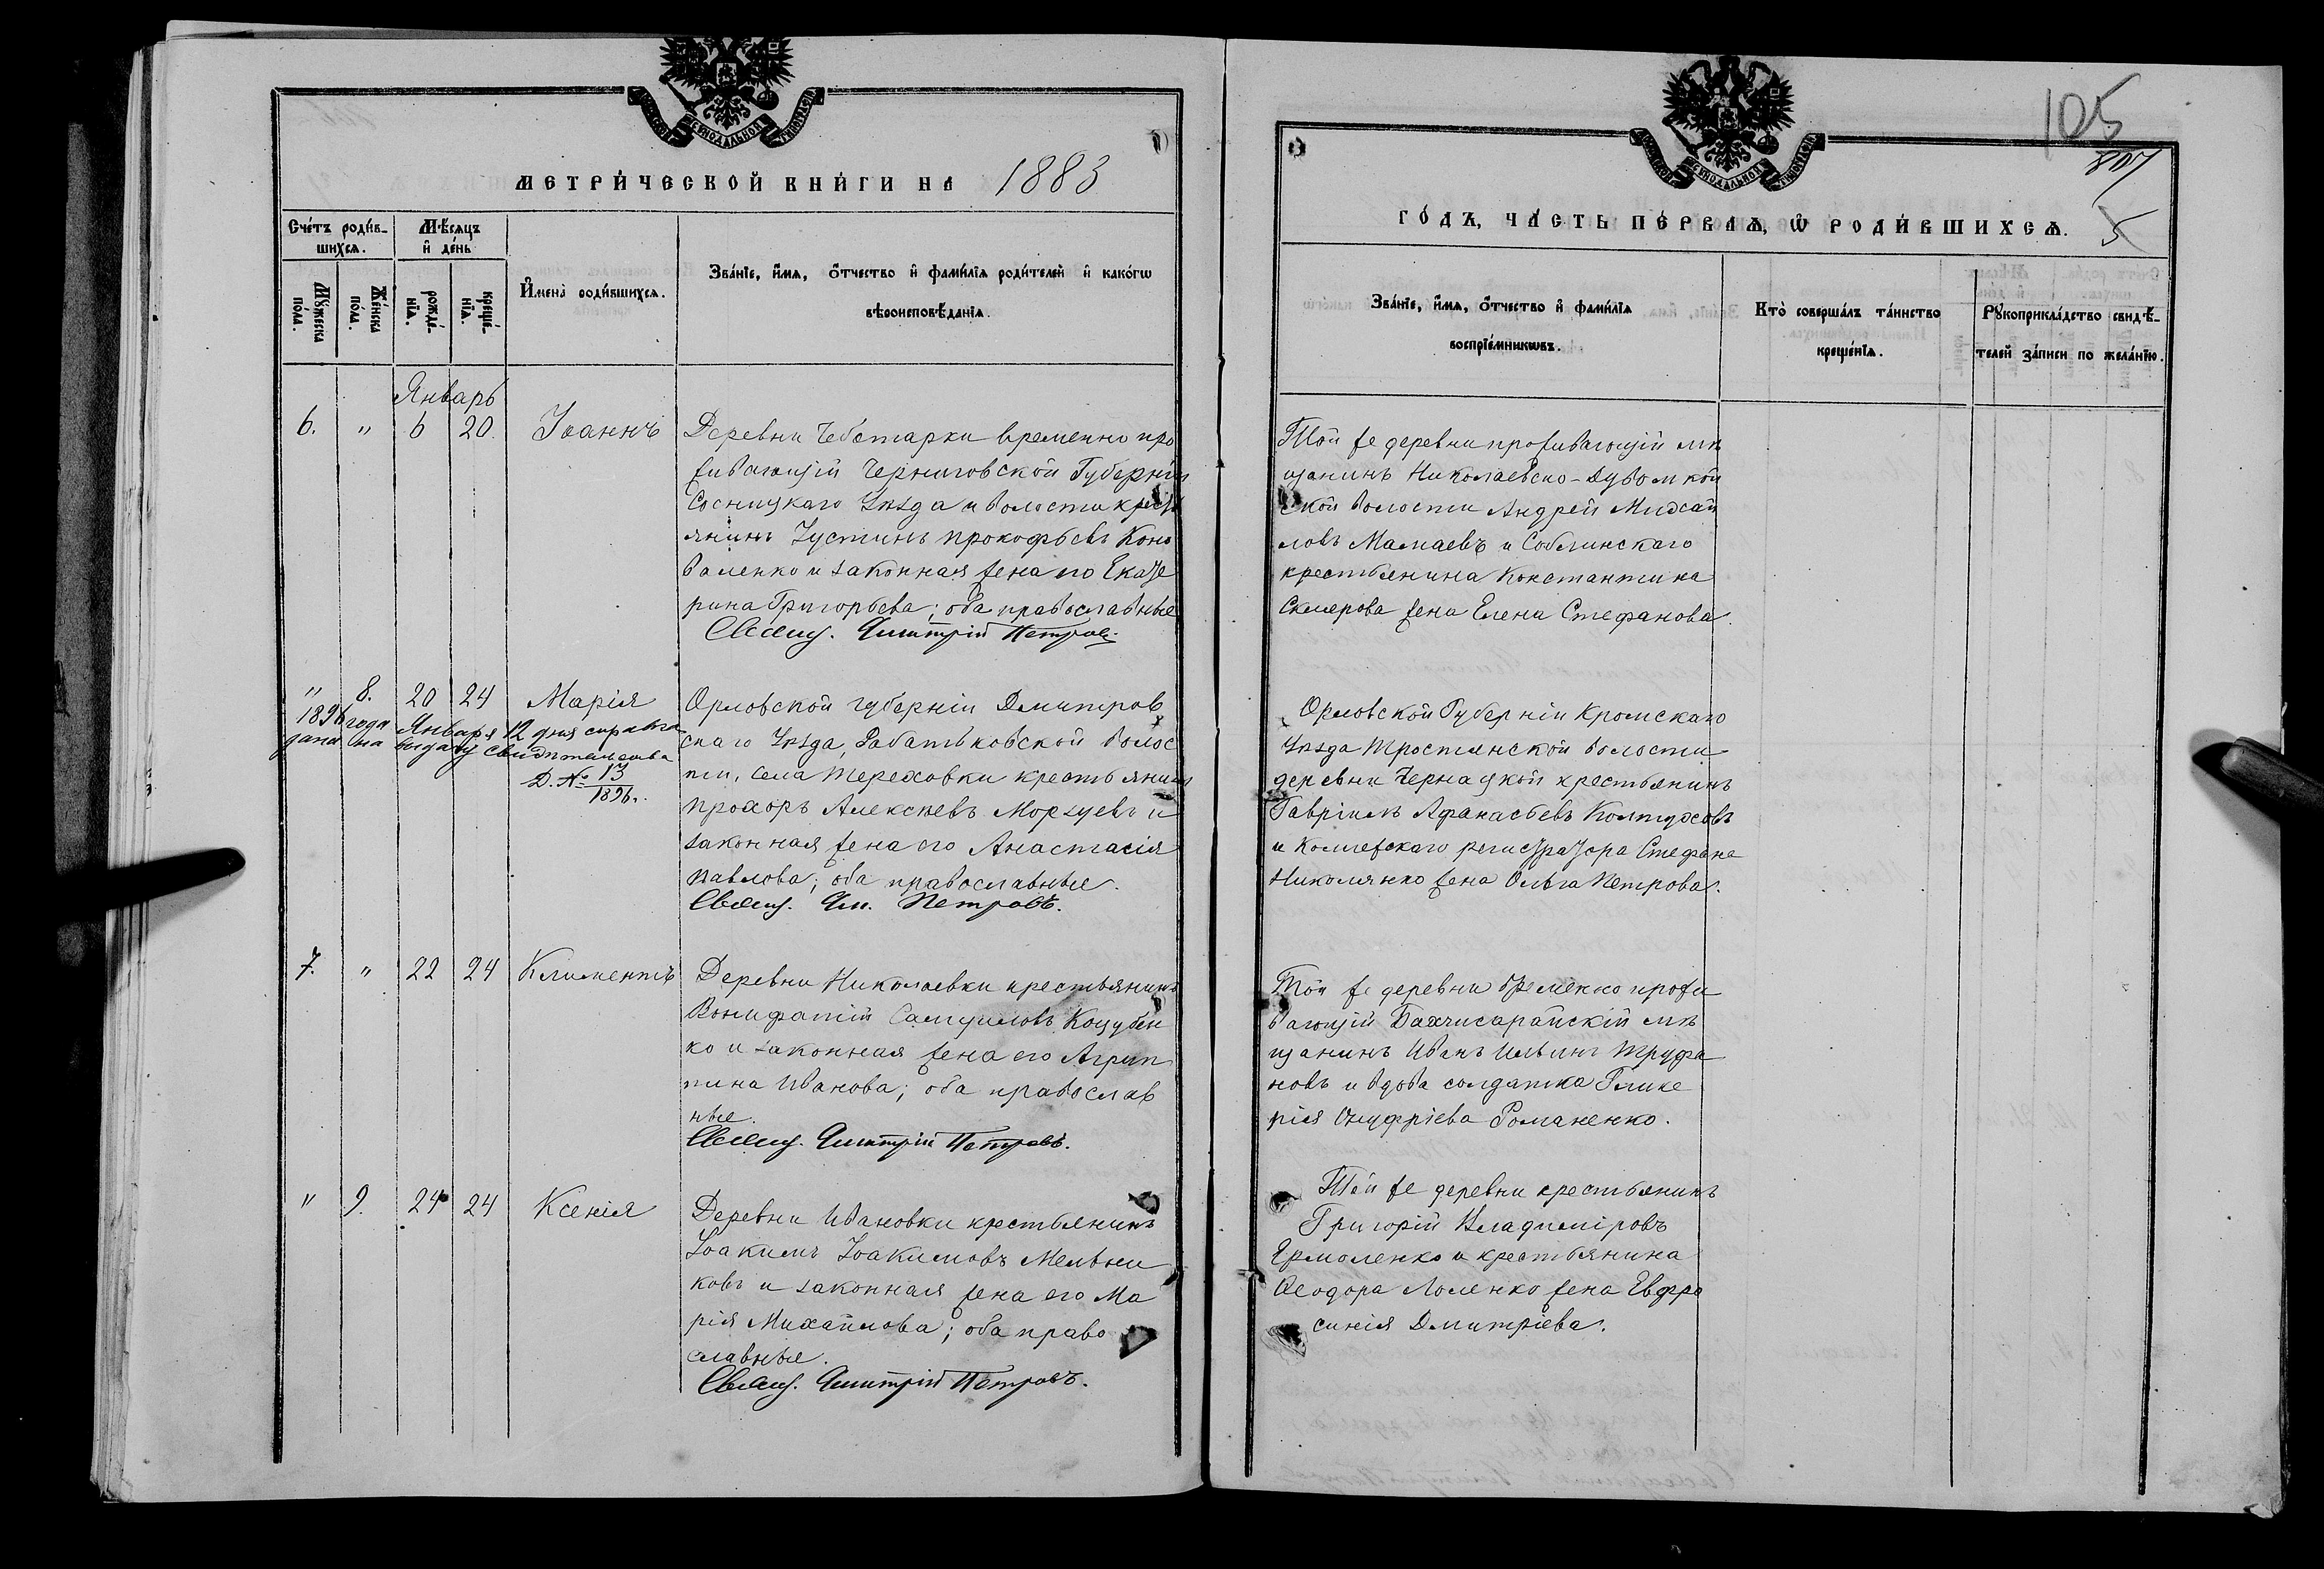 МЕТРИ́ЧЕСКОЙ КНИ́ГИ НА 1883
Сче́тъ роди́в-
шихсѧ.
Мѣ́сѧцъ
и҆ де́нь
Мꙋ́жеска
по́ла.
Же́нска
по́ла.
рожде́-
нїѧ.
креще́-
нїѧ.
И҆мена̀ роди́вшихсѧ.
Зва́нїе, и҆́мѧ, ѻ҆́тчество и҆ фами́лїѧ роди́телей и҆ како́гѡ
вѣроисповѣ́данїѧ.
Январь
6. " 6 20. Іоаннъ
Деревни Чеботарки временно про
живающій Черниговской Губерніи
Сосницкаго Уѣзда и волости крестъ
янинъ Іустинъ Прокофьевъ Коно
валенко и законная жена его Екате
рина Григорьева; оба православные
Свящ. Димитрій Петровъ.
" 8. 20 24 Марія
1896 года Января 12 дня справка
дана на выдачу свидѣтельства
Д. № 13
1896 г.
Орловской губерніи Дмитров
скаго Уѣзда, Лабатьковской волос
ти, села Тереховки крестьянинъ
Прохоръ Алексѣевъ Морзуевъ и
законная жена его Анастасія
Павлова; оба православные.
Свящ. Дм. Петровъ.
7. " 22 24 Климентъ
Деревни Николаевки крестьянинъ
Вонифатій Самуиловъ Коцубен
ко и законная жена его Агрип
пина Иванова; оба православ
ные.
Свящ. Димитрій Петровъ.
" 9. 24 24 Ксенія
Деревни Ивановки крестьянинъ
Іоакимъ Іоакимовъ Мельни
ковъ и законная жена его Ма
рія Михайлова; оба право
славные.
Свящ. Димитрій Петровъ.
105
807
5
ГО́ДЪ, ЧА́СТЬ ПЕ́РВАѦ, Ѡ҆ РОДИ́ВШИХСѦ.
Зва́нїе, и҆́мѧ, ѻ҆́тчество и҆ фами́лїѧ
воспрїе́мникѡвъ.
Кто̀ соверша́лъ та́инство
креще́нїѧ.
Рꙋкоприкла́дство свидѣ́-
телей за́писи по жела́нїю.
Той же деревни проживающій мѣ
щанинъ Николаевско-
ской волости Андрей Михай
ловъ Мамаевъ и Соблинскаго
крестьянина Константина
Склерова жена Елена Стефанова.
Орловской Губерніи Кромскаго
Уѣзда Тростянской волости
деревни Чернацкой крестьянинъ
Гавріилъ Афанасьевъ Колтуховъ
и Коллежскаго регистратора Стефана
Николянко жена Ольга Петрова.
Той же деревни временно прожи
вающій Бахчисарайскій мѣ
щанинъ Иванъ Ильинъ Труфа
новъ и вдова солдатка Глике
рія Онуфріева Романенко.
Той же деревни крестьянинъ
Григорій Владиміровъ
Ермоленко и крестьянина
Ѳеодора Лоленко жена Евфро
синія Дмитріева.